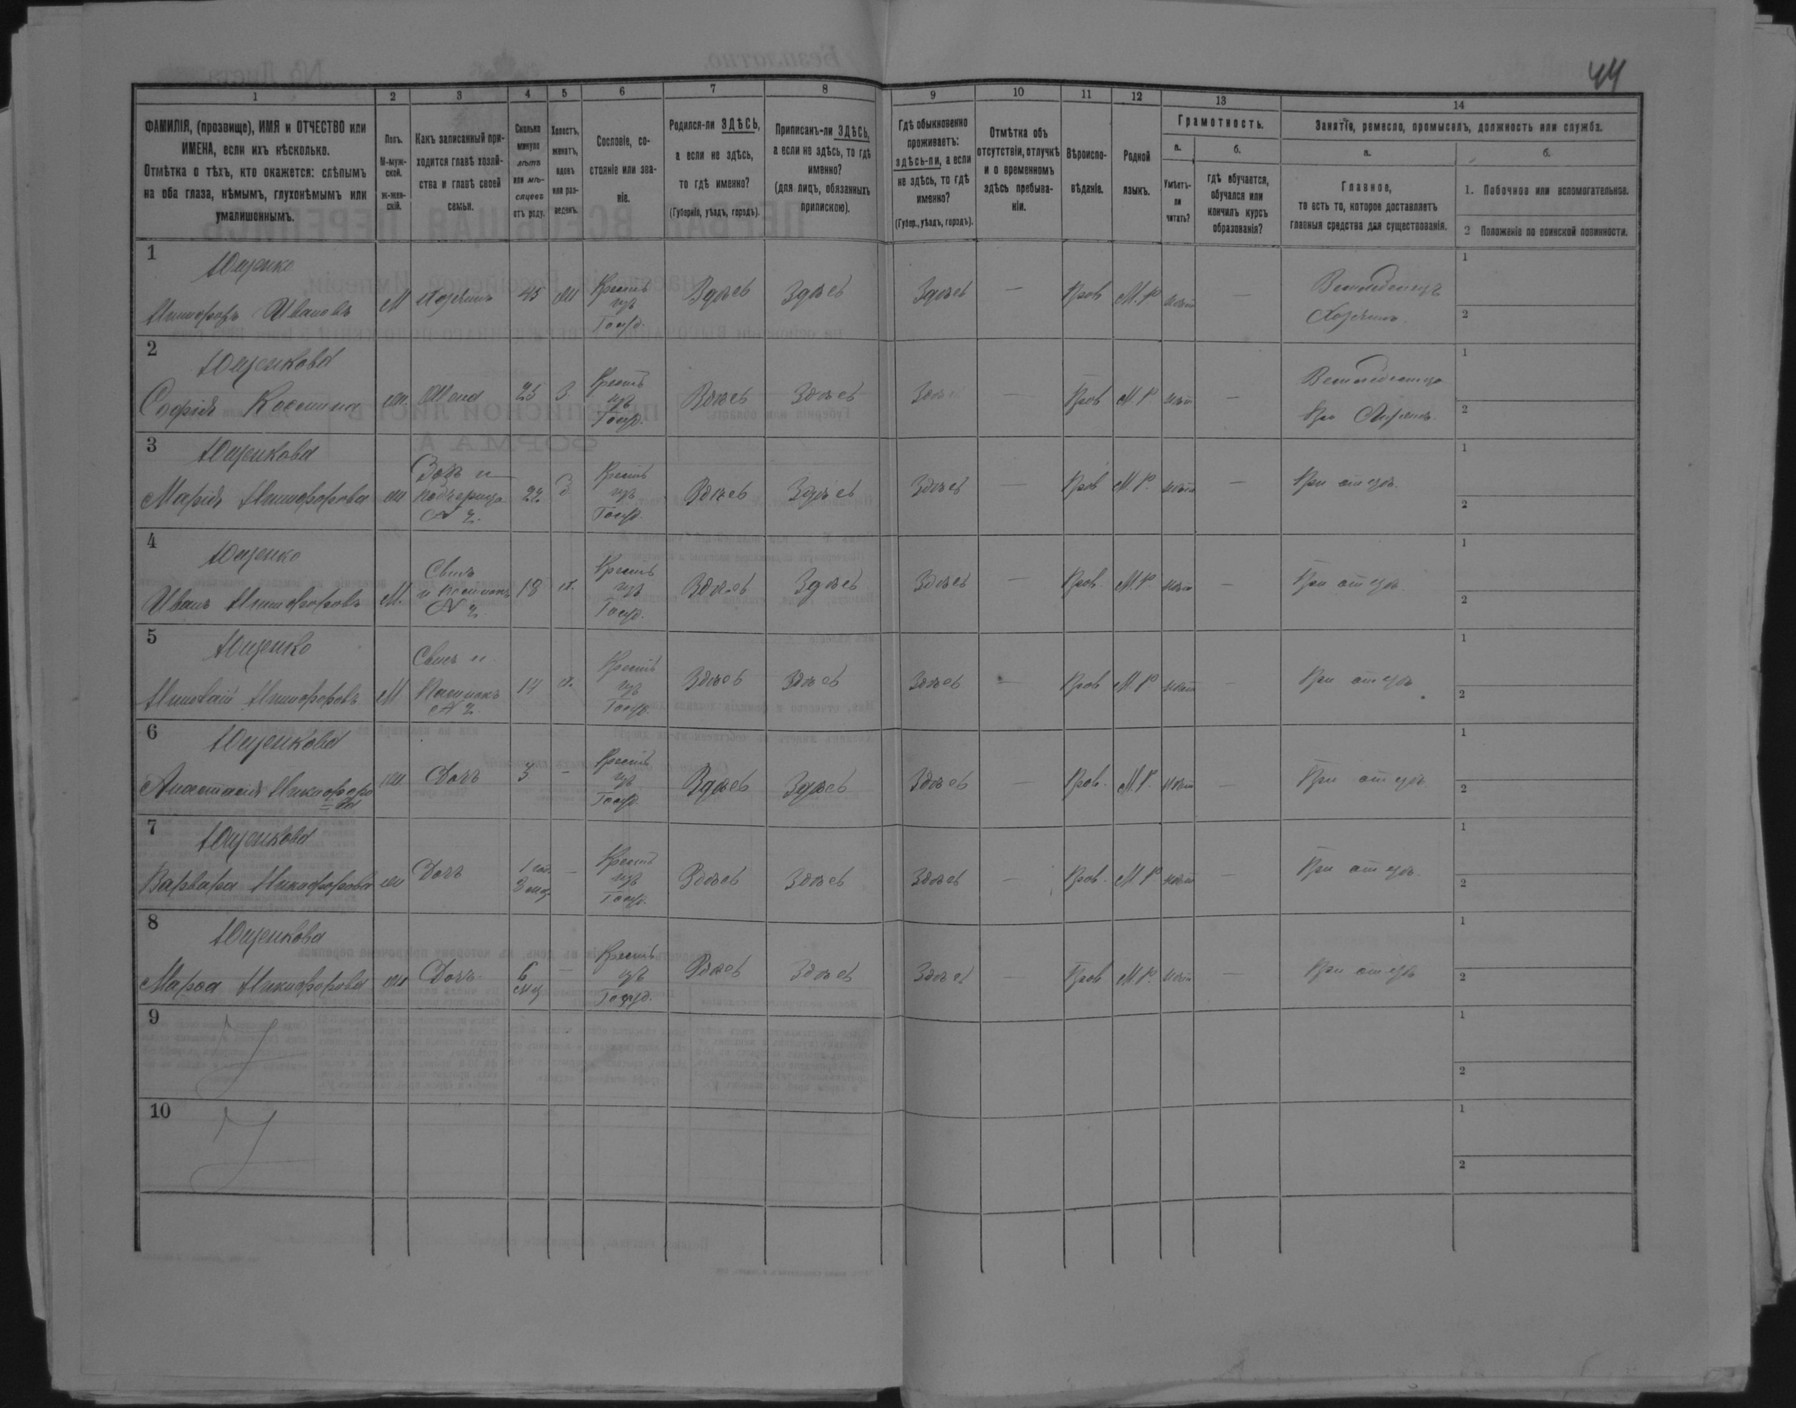 44
1 2 3 4 5 6 7 8 9 10 11 12 13 14
ФАМИЛІЯ, (прозвище), ИМЯ и ОТЧЕСТВО или
ИМЕНА, если ихъ нѣсколько.
Отмѣтка о тѣхъ, кто окажется: слѣпымъ
на оба глаза, нѣмымъ, глухонѣмымъ или
умалишеннымъ.
Полъ.
М-муж-
ской.
ж-жен-
скій.
Какъ записанный при-
ходится главѣ хозяй-
ства и главѣ своей
семьи.
Сколько
минуло
лѣтъ
или мѣ-
сяцевъ
отъ роду.
Холостъ,
женатъ,
вдовъ
или раз-
веденъ.
Сословіе, со-
стояніе или зва-
ніе.
Родился-ли ЗДѢСЬ,
а если не здѣсь,
то гдѣ именно?
(Губернія, уѣздъ, городъ).
Приписанъ-ли ЗДѢСЬ,
а если не здѣсь, то гдѣ
именно?
(для лицъ, обязанныхъ
припискою).
Гдѣ обыкновенно
проживаетъ:
здѣсь-ли, а если
не здѣсь, то гдѣ
именно?
(Губер., уѣздъ, городъ).
Отмѣтка объ
отсутствіи, отлучкѣ
и о временномъ
здѣсь пребыва-
ніи.
Вѣроиспо-
вѣданіе.
Родной
языкъ.
Грамотность.
а.
Умѣетъ-
ли
читать?
б.
гдѣ обучается,
обучался или
кончилъ курсъ
образованія?
Занятіе, ремесло, промыселъ, должность или служба.
а.
Главное,
то есть то, которое доставляетъ
главныя средства для существованія.
б.
1. Побочное или вспомогательное.
2 Положеніе по воинской повинности.
1
Ющенко
Никифоръ Ивановъ М Хозяинъ 45 Ж Крестъ изъ Госуд. Здѣсь Здѣсь Здѣсь — Прав М.Р нѣтъ —
Хозяинъ
1
2
2
Ющенкова
Софія Жена 25 З Крестъ изъ Госуд. Здѣсь Здѣсь — Прав М Р нѣтъ —
При
1
2
3
Ющенкова
Марія Никифорова ж 22 З Крестъ изъ Госуд. Здѣсь Здѣсь Здѣсь — Прав М Р. нѣтъ — При отцѣ
1
2
4
Ющенко
Иванъ Никифоровъ М. 18 х. Крестъ изъ Госуд. Здѣсь Здѣсь Здѣсь — Прав. М.Р нѣтъ — При отцѣ
1
2
5
Ющенко
Никифоровъ М х. Крестъ изъ Госуд. Здѣсь Здѣсь Здѣсь — Прав М.Р нѣтъ — При отцѣ
1
2
6
Ющенкова
Анастасія Никифоро=ва ж Дочь 3 — Крестъ изъ Госуд. Здѣсь Здѣсь Здѣсь — Прав. М.Р. нѣтъ — При отцѣ
1
2
7
Ющенкова
Варвара Никифорова ж Дочь 1 год. 3 мѣс — Крестъ изъ Госуд. Здѣсь Здѣсь Здѣсь — Прав. М Р нѣтъ — При отцѣ
1
2
8
Ющенкова
Марѳа Никифорова ж Дочь 6 мѣс — Крестъ изъ Госуд. Здѣсь Здѣсь Здѣсь — Прав М.Р. нѣтъ — При отцѣ
1
2
9
1
2
10
1
2